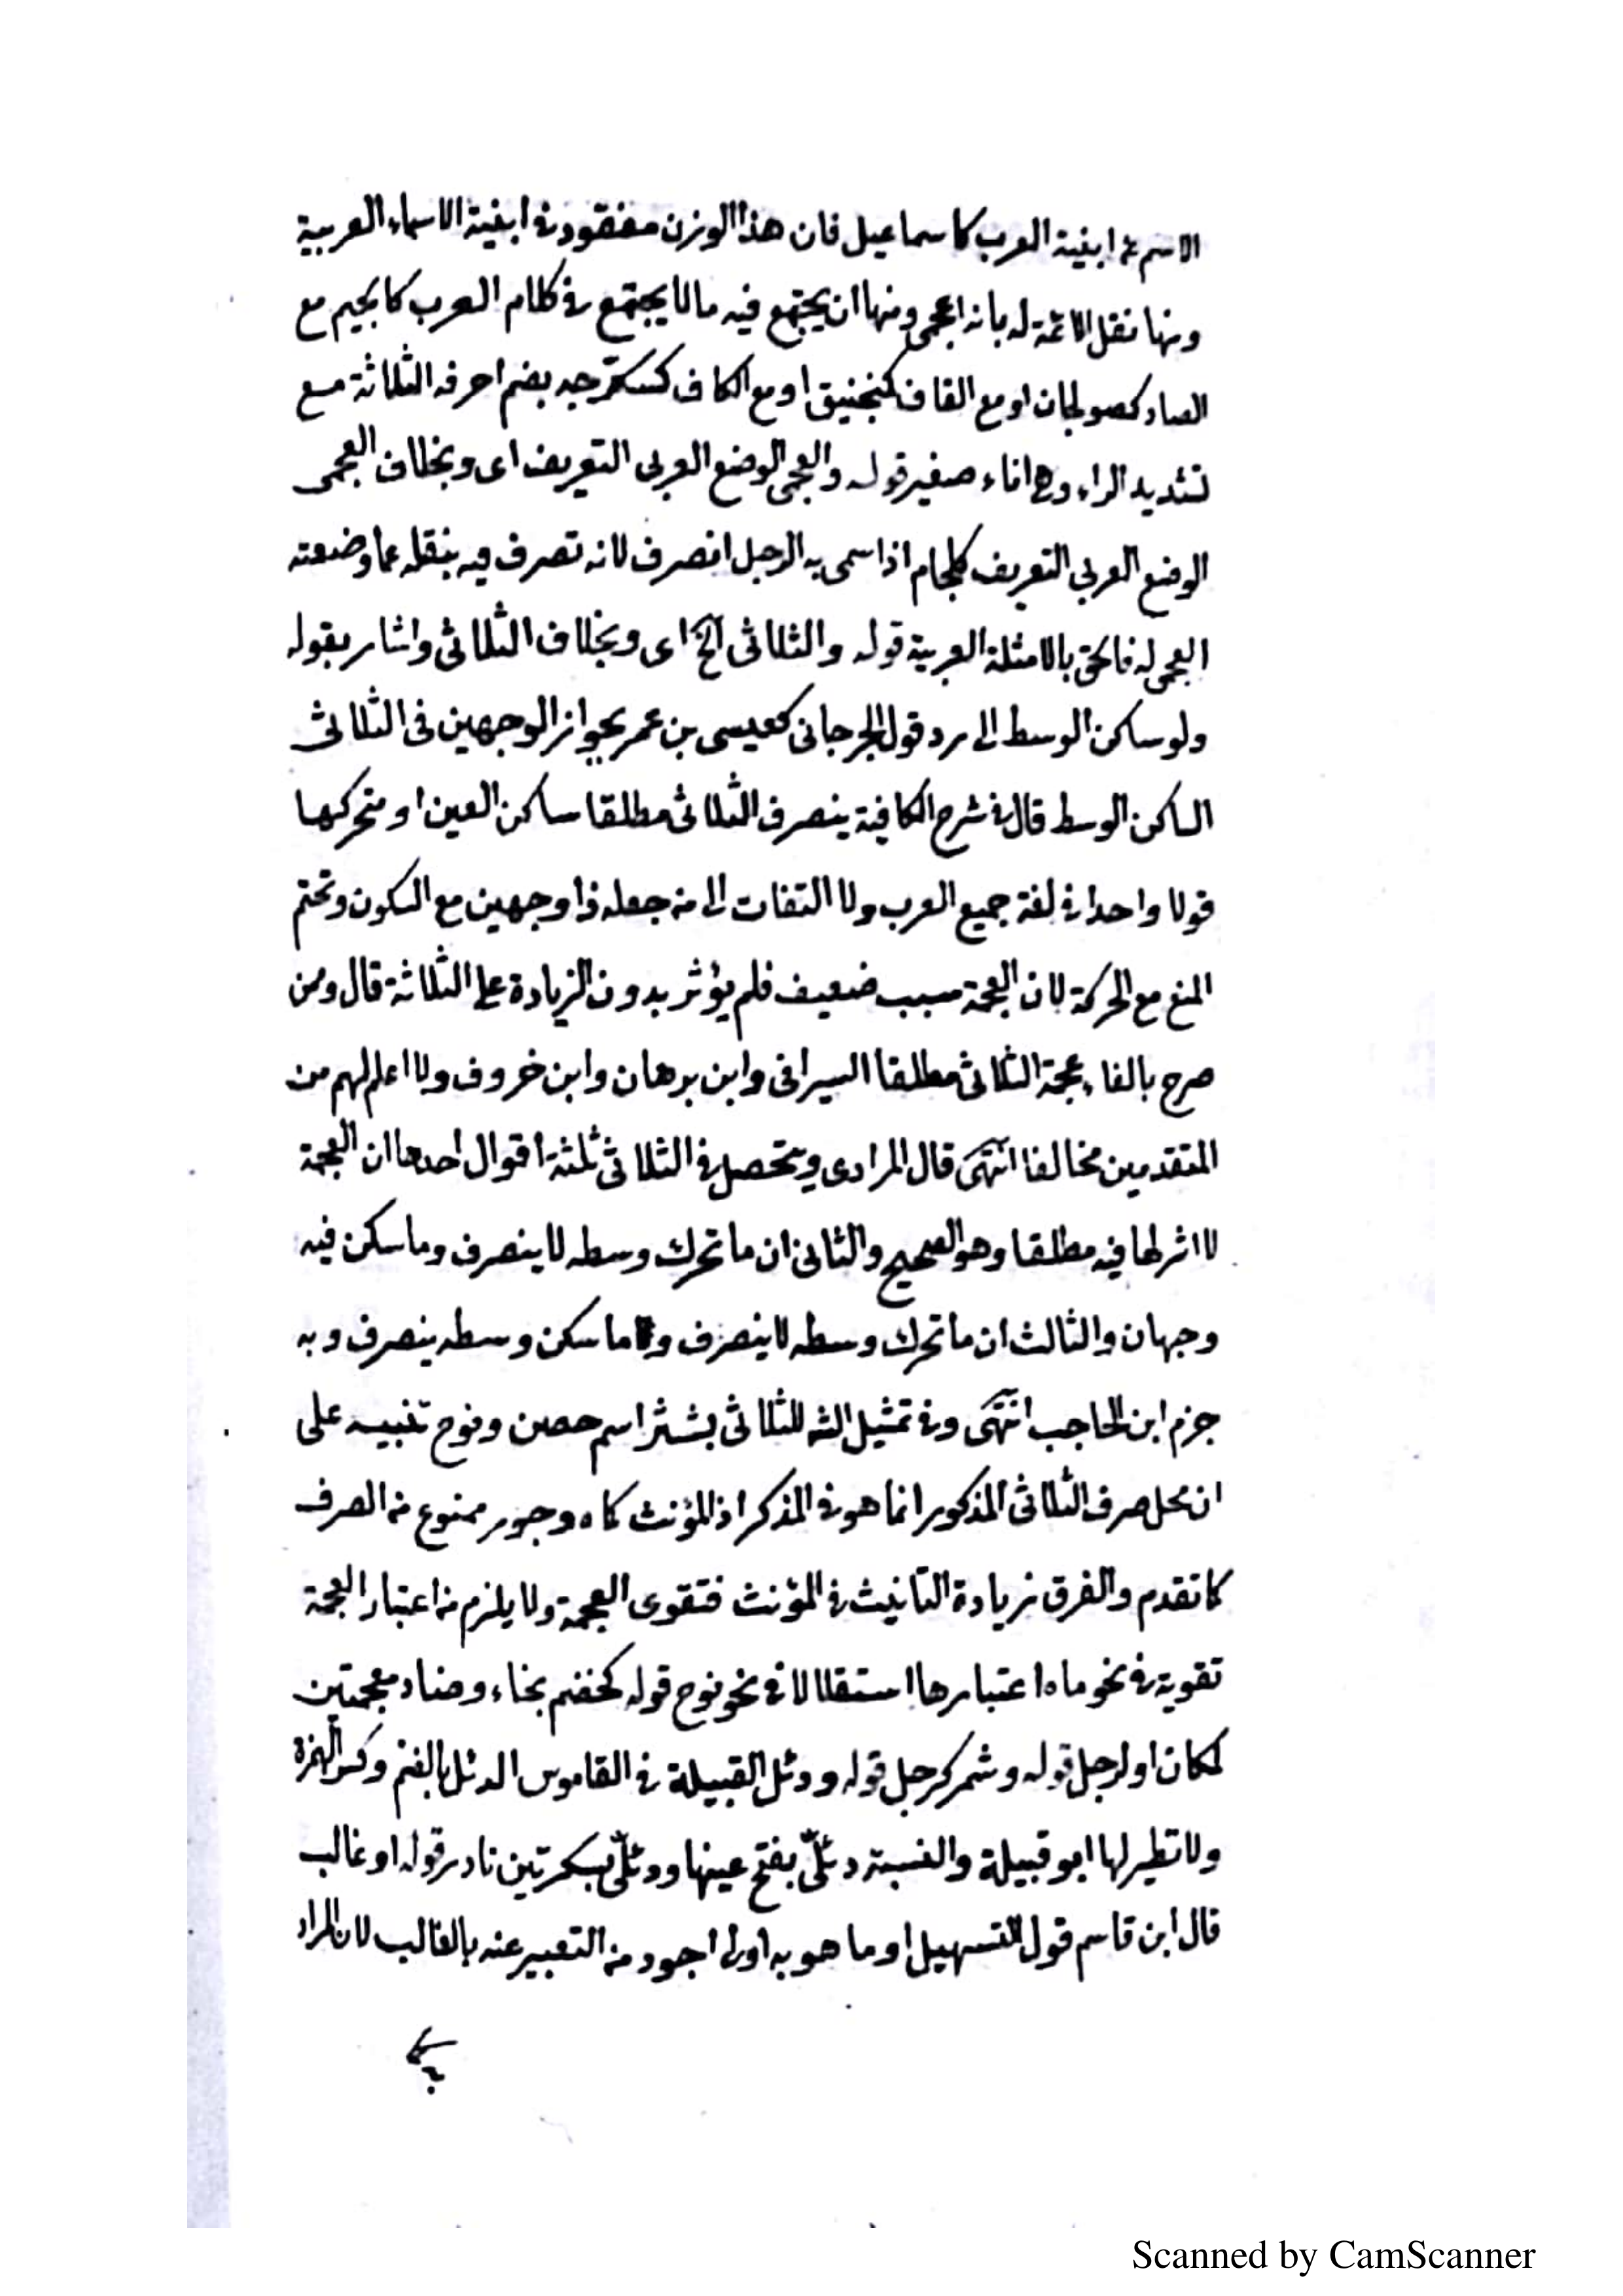 الاسم عن ابنية العرب كاسماعيل فان هذا الوزن مفقود في ابنية الاسماء العربية
ومنها نقل الائمة له بانه اعجمى ومنها ان يجتمع فيه ما لا يجتمع في كلام العرب كالجيم مع
الصاد كصولجان او مع القاف كمنجنيق او مع الكاف كسكرجه بضم احرفه الثلاثة مع
تشديد الراء وهي اناء صغير قوله والعجمى الوضع العربى التعريف اى وبخلاف العجمى
الوضع العربى التعريف كلجام اذا سمى به الرجل انصرف لانه تصرف فيه بنقله عما وضعته
العجم له فالحق بالامثلة العربية قوله والثلاثى الخ اى وبخلاف الثلاثى واشار بقوله
ولو ساكن الوسط الى رد قول الجرجانى كعيسى بن عمر بجواز الوجهين فى الثلاثى
الساكن الوسط قال في شرح الكافية ينصرف الثلاثى مطلقا ساكن العين او متحركها
قولا واحدا في لغة جميع العرب ولا التفات الى من جعله ذا وجهين مع السكون وتحتم
المنع مع الحركة لان العجمة سبب ضعيف فلم يؤثر بدون الزيادة على الثلاثة قال وممن
صرح بالغاء عجمة الثلاثى مطلقا السيرافى وابن برهان وابن خروف ولا اعلم لهم من
المتقدمين مخالفا انتهى قال المرادى ويتحصل في الثلاثى ثلثة اقوال احدها ان العجمة
لا اثر لها فيه مطلقا وهو الصحيح والثانى ان ما تحرك وسطه لا ينصرف وما سكن فيه
وجهان والثالث ان ما تحرك وسطه لا ينصرف وما سكن وسطه ينصرف وبه
جزم ابن الحاجب انتهى وفي تمثيل الشه للثلاثى بشتر اسم حصن ونوح تنبيه على
ان محل صرف الثلاثى المذكور انما هو في المذكر اذ المؤنث كماه وجور ممنوع من الصرف
كما تقدم والفرق زيادة التانيث في المؤنث فتقوى العجمة ولا يلزم من اعتبار العجمة
تقوية في نحو ماه اعتبارها استقلالا في نحو نوح قوله كخضم بخاء وضاد معجمتين
لمكان او لرجل قوله وشمر كرجل قوله ودئل القبيلة في القاموس الدئل بالضم وكسر الهمزة
ولا نظير لها ابو قبيلة والنسبة دئلّى بفتح عينها ودئلّى بكسرتين نادر قوله او غالب
قال ابن قاسم قول التسهيل او ما هو به اولى اجود من التعبير عنه بالغالب لان المراد
Scanned by CamScanner